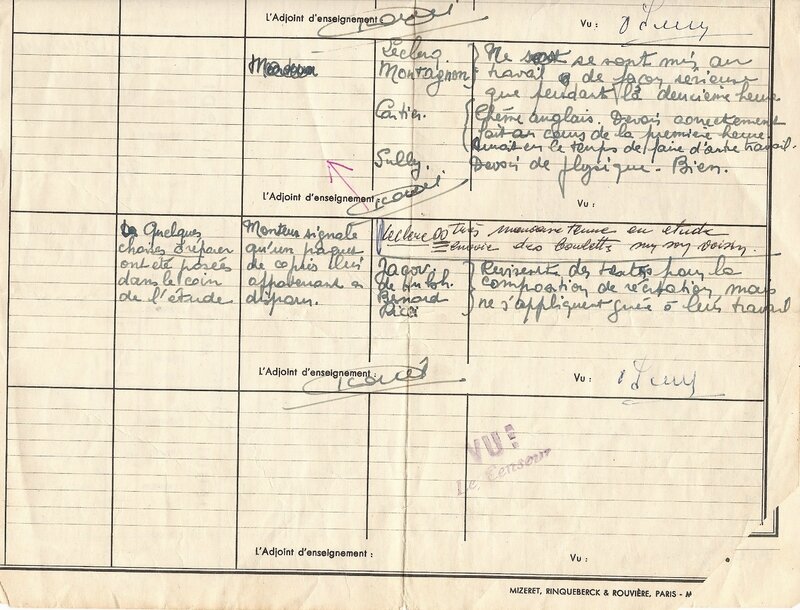 L'Adjoint d'enseignement
Vu :
Leclerq
Montagnon
Ne se sont mis au
travail de façon sérieuse
que pendant la deuxième heure
Cartier.
Thème anglais. Devoir correctement
fait au cours de la première heure.
le temps de faire d'autre travail.
Sully.
Devoir de physique. Bien.
L'Adjoint d'enseignement
Vu :
Quelques
chaises à réparer
ont été posées
dans le coin
de l'étude
Monteux signale
qu'un paquet
de copies lui
appartenant a
disparu.
Leclerc
Très mauvaise tenue en étude
envoie des boulettes sur son voisin.
Bernard
des textes pour la
composition de récitation mais
ne s'appliquent guère à leur travail
L'Adjoint d'enseignement :
Vu :
VU!
Le Censeur
L'Adjoint d'enseignement :
Vu :
MIZERET, RINQUEBERCK & ROUVIÈRE, PARIS -